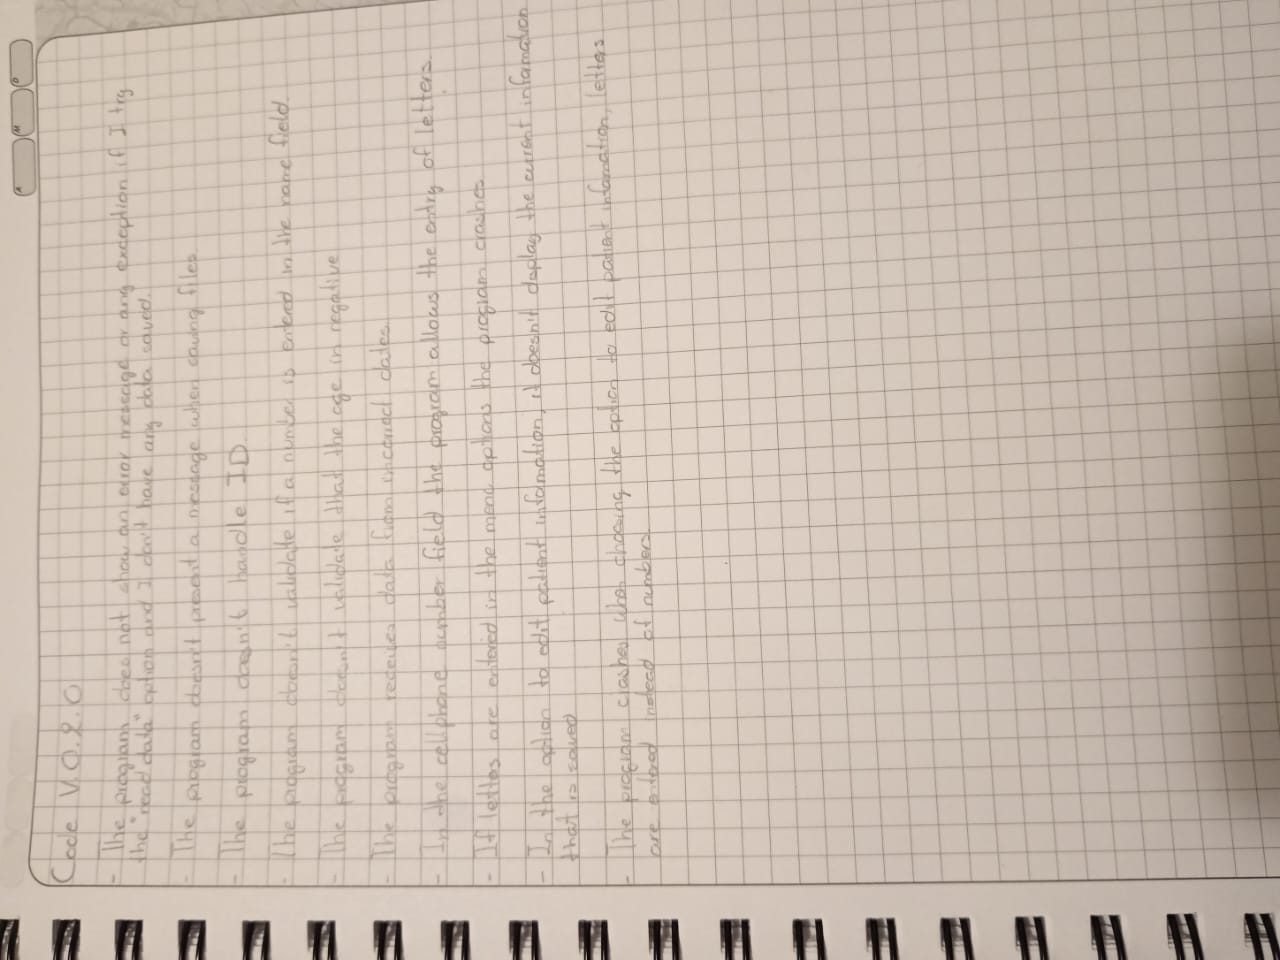 A M D
Code V.0.2.0
- The program does not show an error message or any exception if I try
the "read data" option and I don't have any data saved.
- The program doesn't present a message when saving files.
- The program doesn't handle ID.
- The program doesn't validate if a number is entered in the name field.
- The program doesn't validate that the age in negative
- The program receives data from incorrect dates.
- In the cellphone number field the program allows the entry of letters.
- If letters are entered in the menu options the program crashes.
- In the option to edit patient information, it doesn't display the current information
that is saved
- The program crashes when choosing the option to edit patient information, letters
are entered instead of numbers.